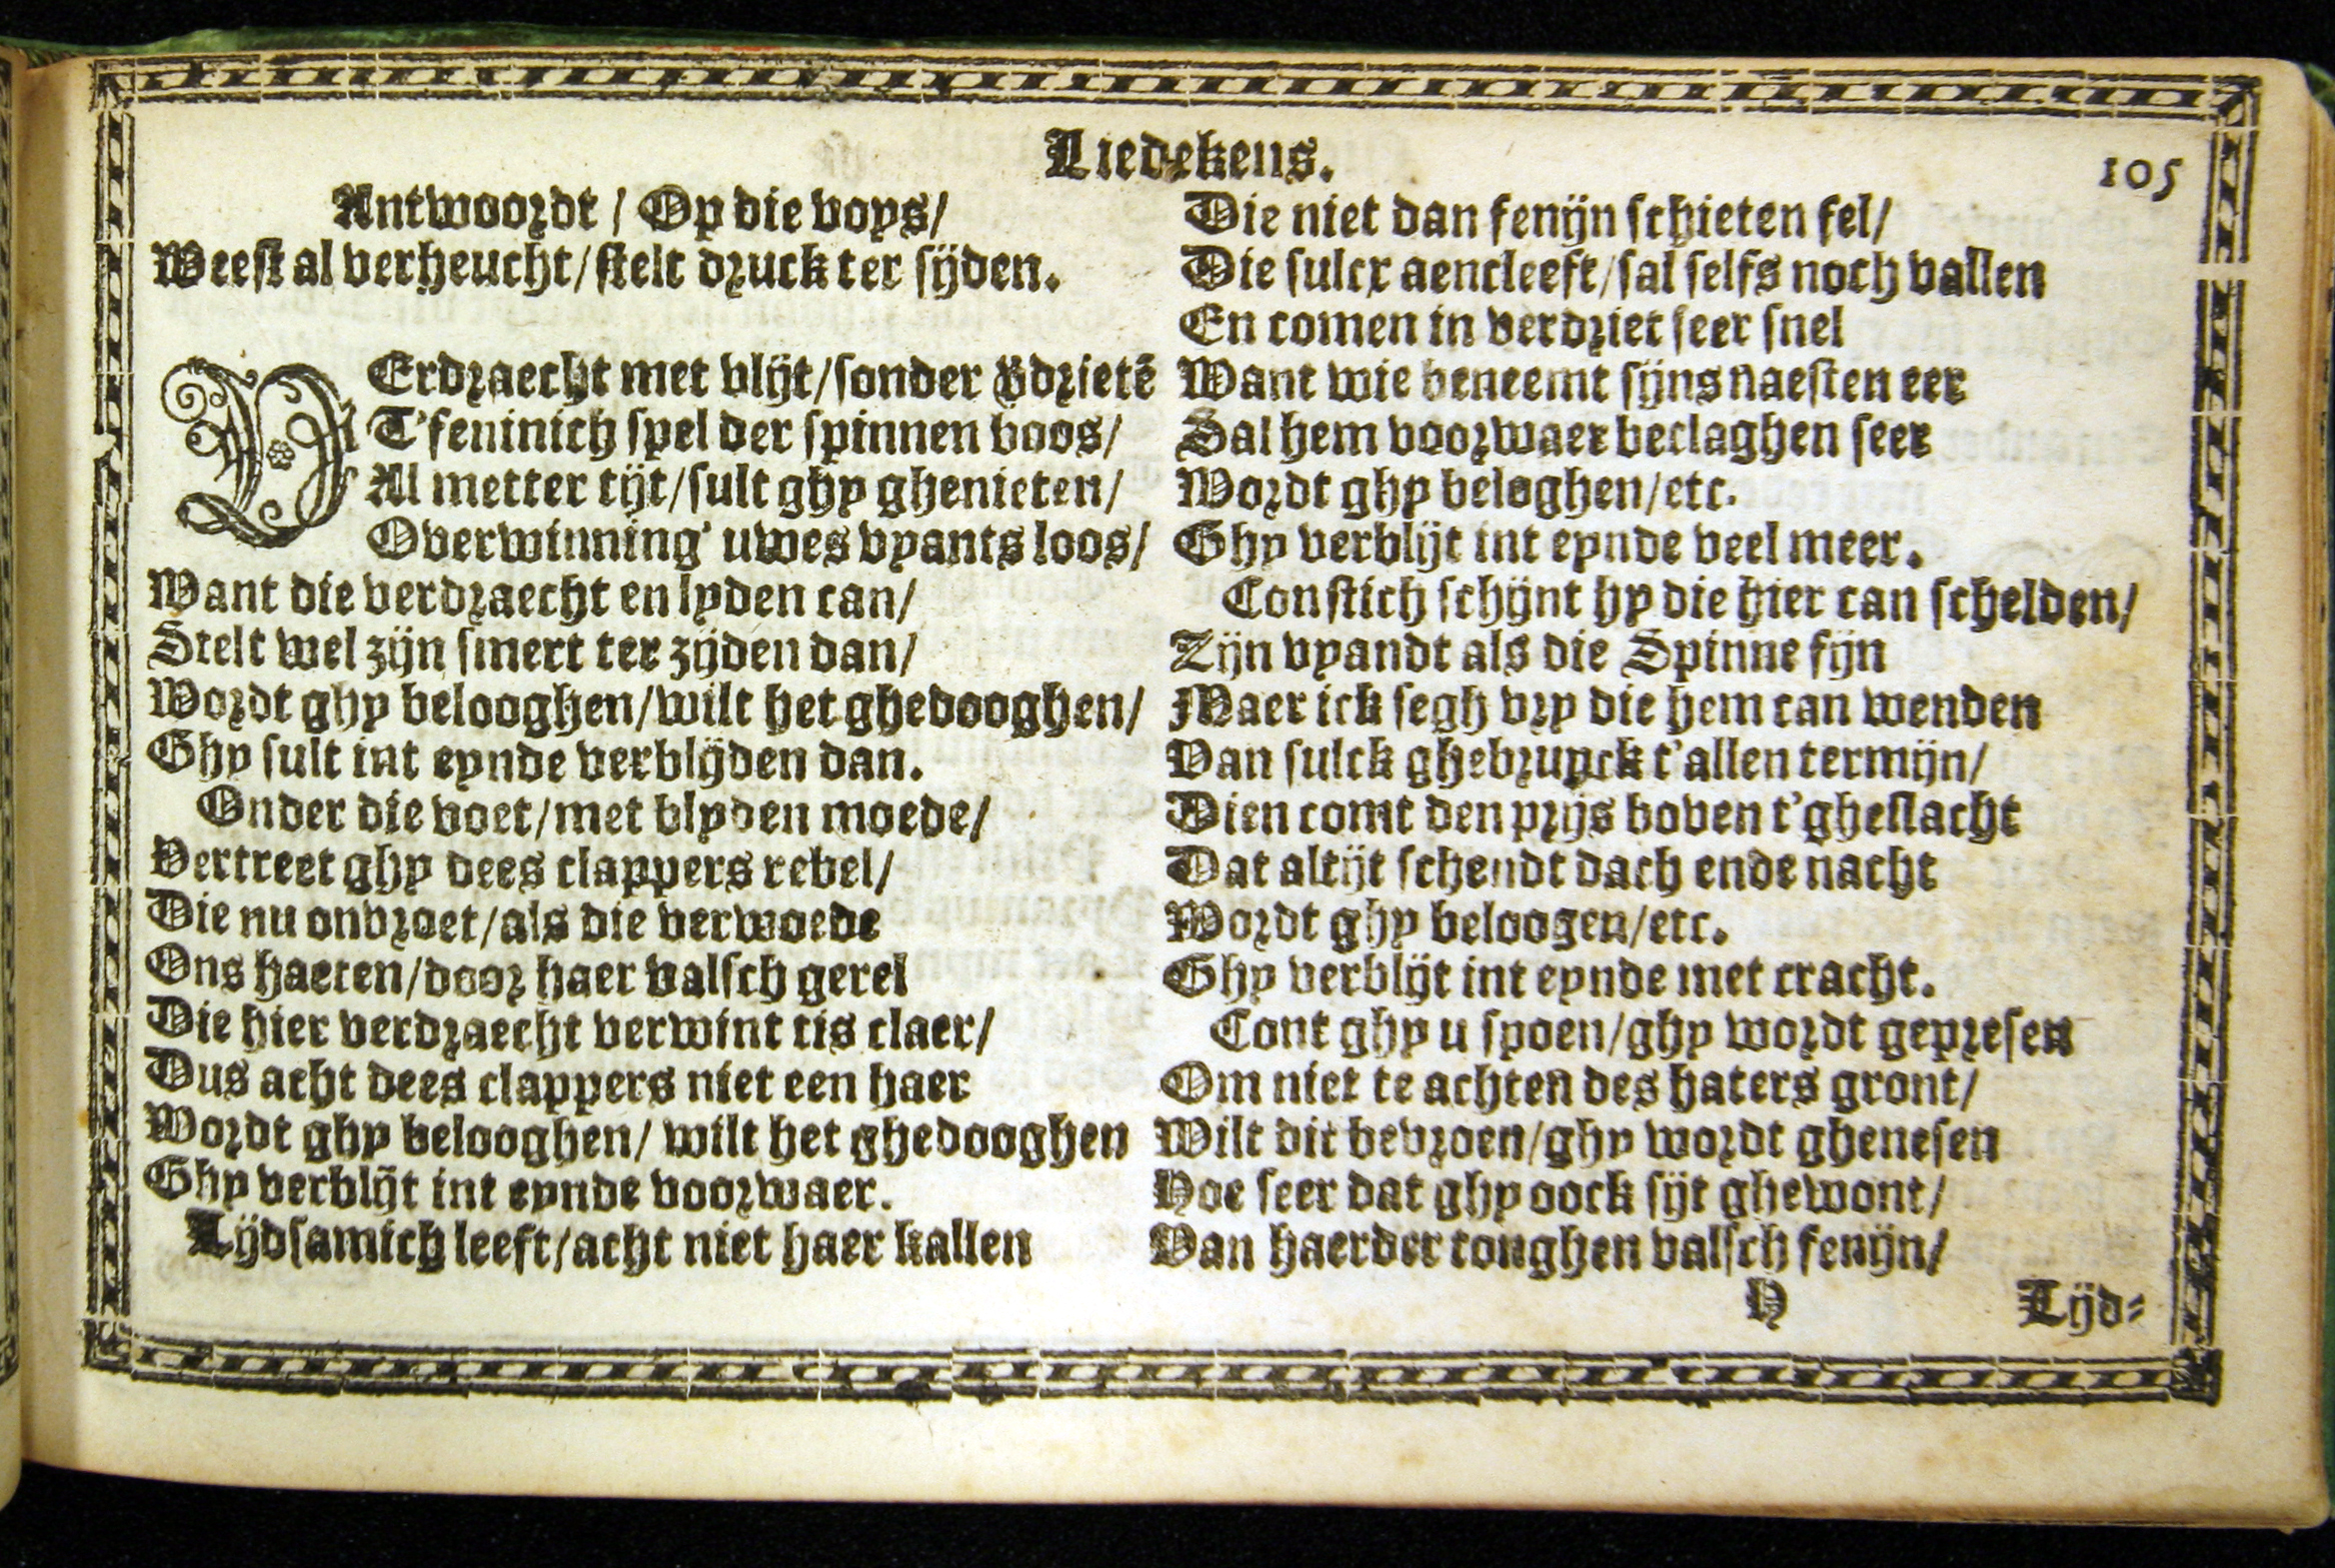 Liedekens.
105
Antwoordt / Op die voys/
Weest al verheucht/stelt druck ter sijden.
VErdraecht met vlijt/sonder v̄drietē
T'feninich spel der spinnen boos/
Al metter tijt/sult ghy ghenieten/
Overwinning' uwes vyants loos/
Want die verdraecht en lyden can/
Stelt wel zijn smert ter zijden dan/
Wordt ghy belooghen/wilt het ghedooghen/
Ghy sult int eynde verblijden dan.
Onder die voet/met blyden moede/
Vertreet ghy dees clappers rebel/
Die nu onvroet/als die verwoede
Ons haeten/door haer valsch gerel
Die hier verdraecht verwint tis claer/
Dus acht dees clappers niet een haer
Wordt ghy belooghen/ wilt het ghedooghen
Ghy verblijt int eynde voorwaer.
Lijdsamich leeft/acht niet haer kallen
Die niet dan fenijn schieten fel/
Die sulcx aencleeft/sal selfs noch vallen
En comen in verdriet seer snel
Want wie beneemt sijns naesten eer
Sal hem voorwaer beclaghen seer
Wordt ghy beloghen/etc.
Ghy verblijt int eynde veel meer.
Constich schijnt hy die hier can schelden/
Zijn vyandt als die Spinne fijn
Maer ick segh vry die hem can wenden
Van sulck ghebruyck t'allen termijn/
Dien comt den prijs boven t'gheslacht
Dat altijt schendt dach ende nacht
Wordt ghy beloogen/etc.
Ghy verblijt int eynde met cracht.
Cont ghy u spoen/ghy wordt gepresen
Om niet te achten des haters gront/
Wilt dit bevroen/ghy wordt ghenesen
Hoe seer dat ghy oock sijt ghewont/
Van haerder tonghen valsch fenijn/
H
Lijd-